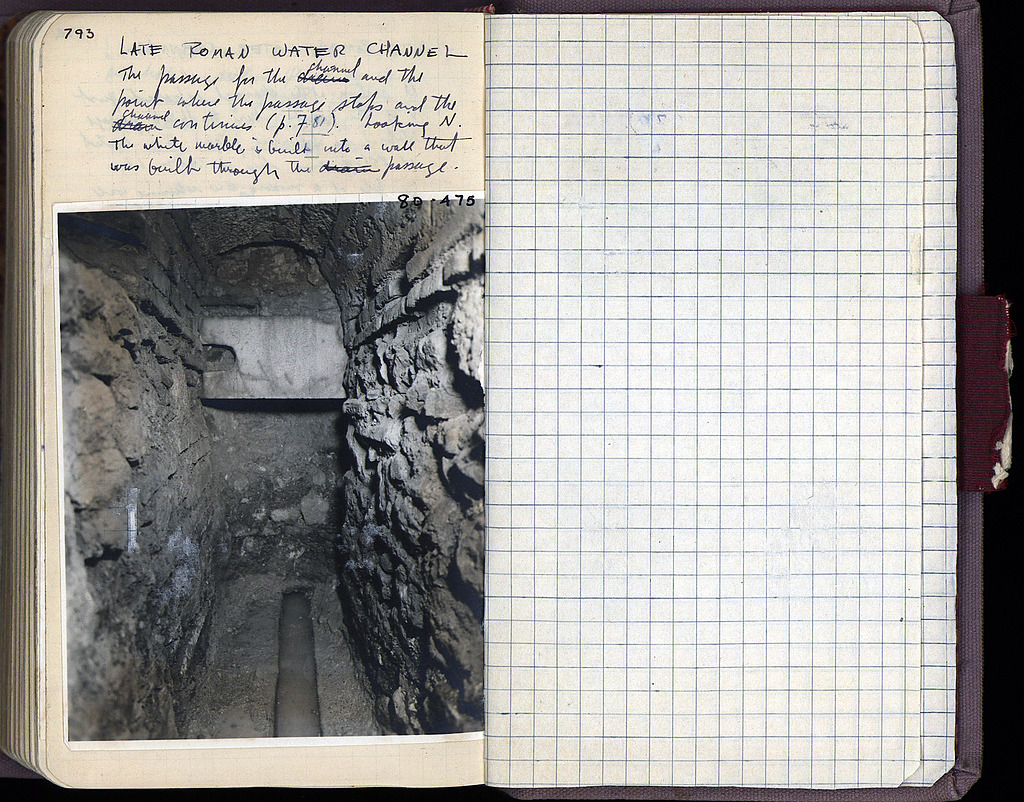 793
LATE ROMAN WATER CHANNEL
The passage for the drain channel and the
point where the passage stops and the
drain channel continues (p. 781). Looking N.
The white marble is built into a wall that
was built through the drain passage.
80-475